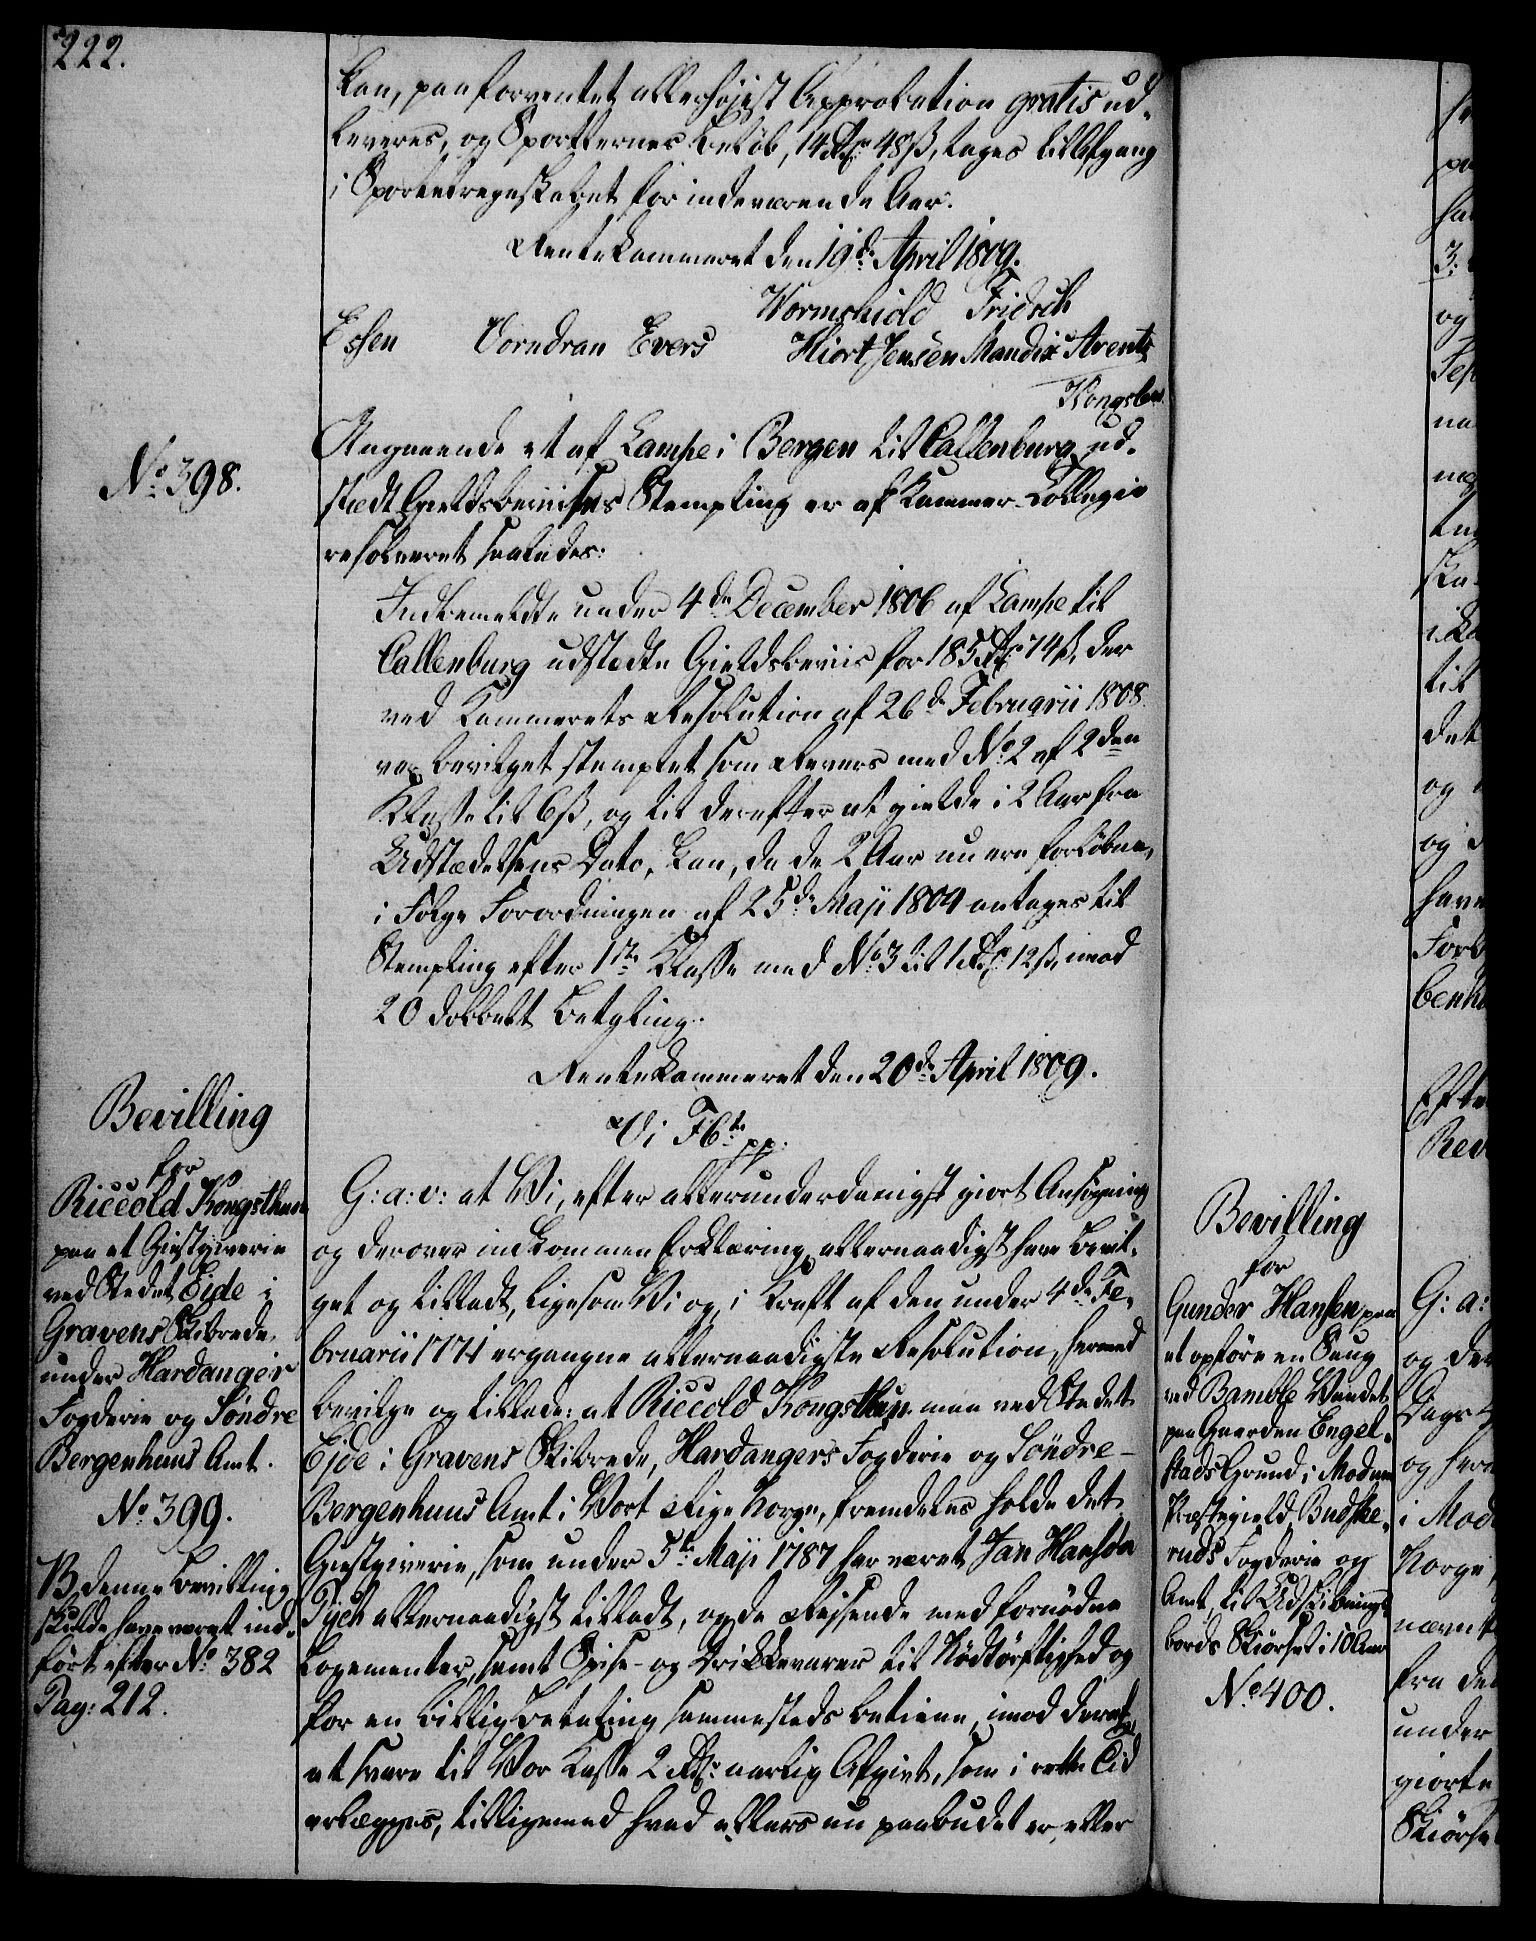 222.
kan, paa forventet allerhøjest Approbation gratis ud-
leveres, og Sportlernes Beløb, 14 Rdr 48 ß, tages til Afgang
i Sportelregnskabet for indeværende Aar.
Rentekammeret den 19de April 1809.
Wormskiold Fridsch
Essen Vorndran Evers Hiort Jensen Mandix Arentz
No 398.
Angaaende et af Lampe i Bergen til Callenburg ud-
stædt Gieldsbeviises Stempling er af Kammer-Collegio
resolveret saaledes:
Indbemeldte under 4de December 1806 af Lampe til
Callenburg udstedte Gieldsbeviis for 185 Rdr 74 ß, der
ved Kammerets Resolution af 26de Februarii 1808
var bevilget stemplet som Revers med No 2 af 2den
Klasse til 6 ß, og til derefter at gielde i 2 Aar fra
Udstædelsens Dato, kan, da de 2 Aar nu ere forløbne,
i Følge Forordningen af 25de Maji 1804 antages til
Stempling efter 1ste Klasse med No 3 til 1 Rdr 12 ß, imod
20 dobbelt Betaling.
Rentekammeret den 20de April 1809.
Bevilling
for
Riccold Kongsthun
paa et Giestgiverie
ved Stedet Eide i
Gravens Skibrede,
under Hardanger
Fogderie og Söndre
Bergenhuus Amt.
No 399.
NB, denne Bevilling
skulde have været ind-
ført efter No 382
Pag: 212.
Vi F6te pp.
G: a: v: at Vi, efter allerunderdanigst giort Ansøgning
og derover indkommen Erklæring, allernaadigst have bevil-
get og tilladt, ligesom Vi og, i Kraft af den under 4de Fe-
bruarii 1771 ergangne allernaadigste Resolution, hermed
bevilge og tillade: at Riccold Kongsthun maa ved Stedet
Ejde i Gravens Skibrede, Hardangers Fogderie og Söndre-
Bergenhuus Amt i Vort Rige Norge, fremdeles holde det
Giestgiverie, som under 5te Maji 1787 har været Jan Hansen
allernaadigst tilladt, og de Reisende med fornødne
Logementer, samt Spise- og Drikkevarer til Nødtørftighed og
for en billig Betaling sammesteds betiene, imod deraf
at svare til Vor Kasse 2 Rdr: aarlig Afgivt, som i rette Tid
erlægges, tilligemed hvad ellers nu paabudet er, eller
Bevilling
for
Gunder Hansen paa
at opføre en Saug
ved Bamble Vandet
paa Gaarden Engel-
stads Grund i Modum
Præstegield, Buske-
ruds Fogderie og
Amt, til Udskibnings-
bords Skiørsel i 10 Aar
No 400.
3:
og
til
det
og
og
Efte
G: a:
og der
Dags
og her
i Mod
Norge,
nævnte
fra de
under
giorte
Skiørse